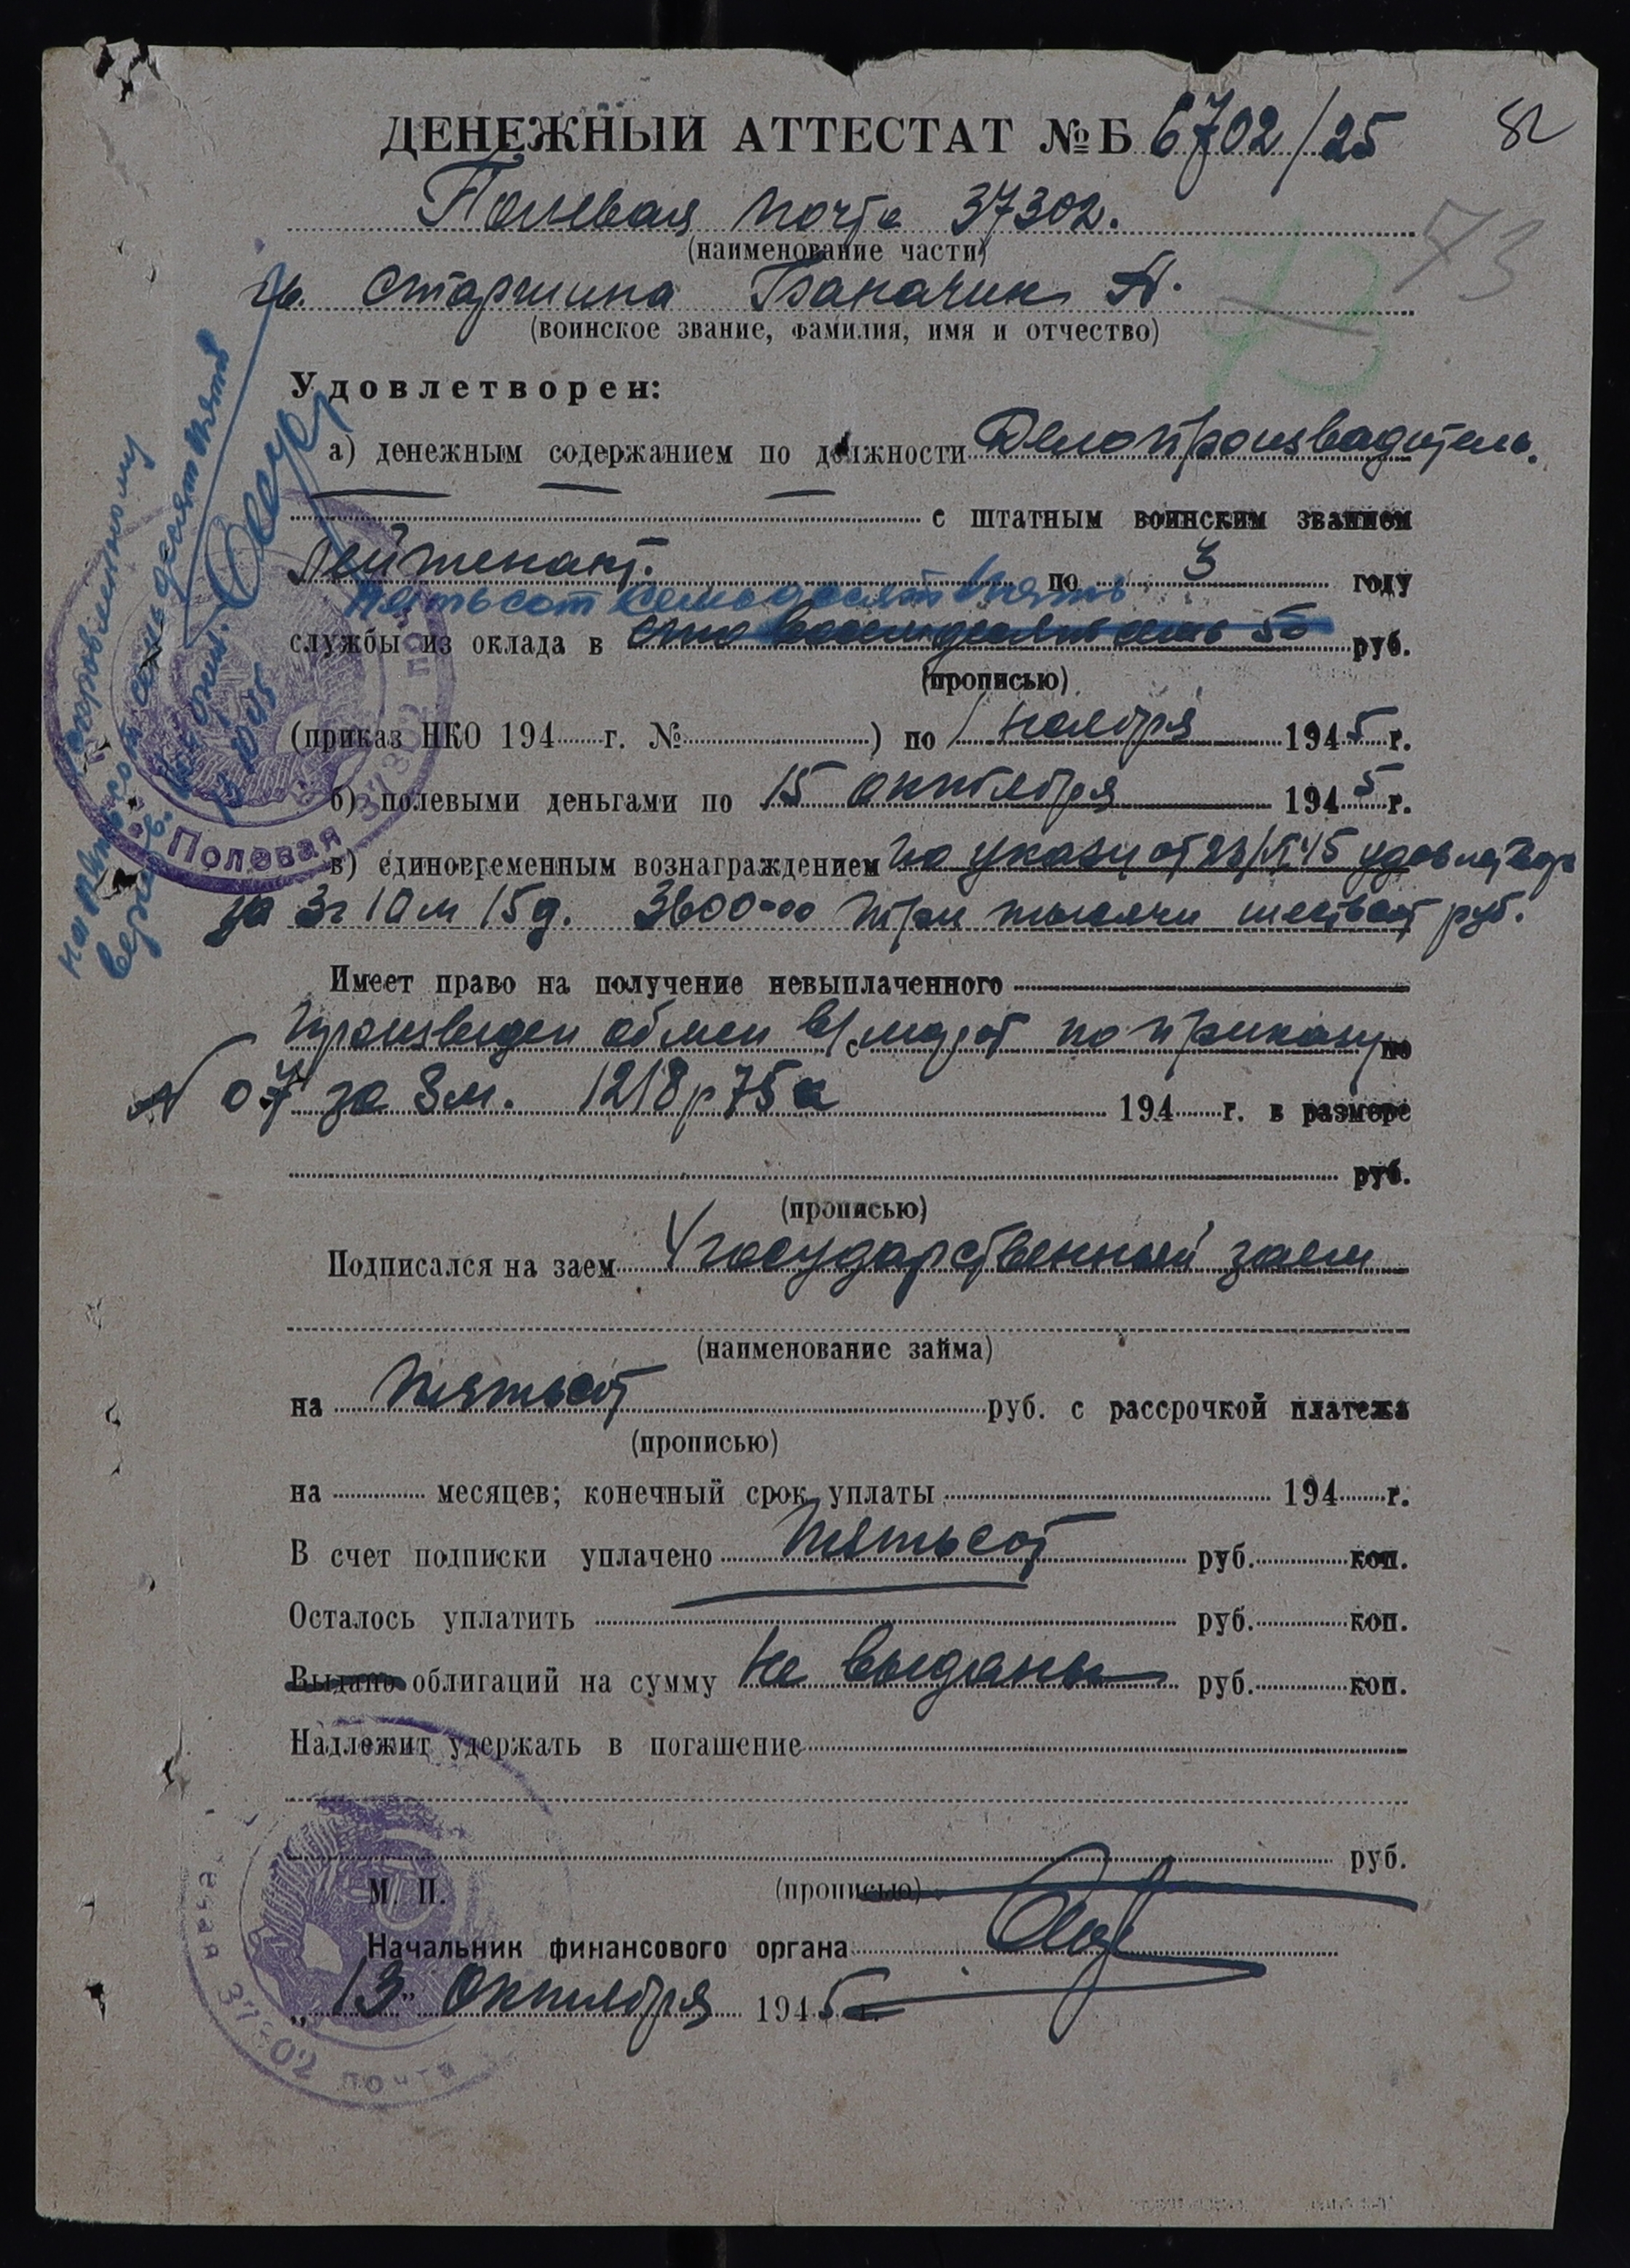 ДЕНЕЖНЫЙ АТТЕСТАТ № Б 6702/25
82
Полевая почта 37302.
(наименование части)
73
73
гв. старшина Баначик А.
(воинское звание, фамилия, имя и отчество)
Удовлетворен:
а) денежным содержанием по должности Делопроизводитель.
с штатным воинским званием
Лейтенант. по 3 году
пятьсот семьдесят пять
службы из оклада в сто восемьдесят семь 50 руб.
(прописью)
(приказ НКО 194 г. № ) по 1 ноября 1945 г.
б) полевыми деньгами по 15 октября 1945 г.
в) единовременным вознаграждением по указу от 23/VI 45 удовлетвор
за 3г 10м 15д. 3600-00 три тысячи шестьсот руб.
Имеет право на получение невыплаченного
произведен обмен по приказу по
N 07 за 3м. 1218р 75к 194 г. в размере
руб.
(прописью)
Подписался на заем 4 государственный заем
(наименование займа)
на пятьсот руб. с рассрочкой платежа
(прописью)
на месяцев; конечный срок уплаты 194 г.
В счет подписки уплачено пятьсот руб. коп.
Осталось уплатить руб. коп.
Выдано облигаций на сумму не выданы руб. коп.
Надлежит удержать в погашение
руб.
М. П. (прописью)
Начальник финансового органа
„13" Октября 1945 г.
исправленному
на пятьсот семьдесят пять
верить.
Полевая
37302 почта